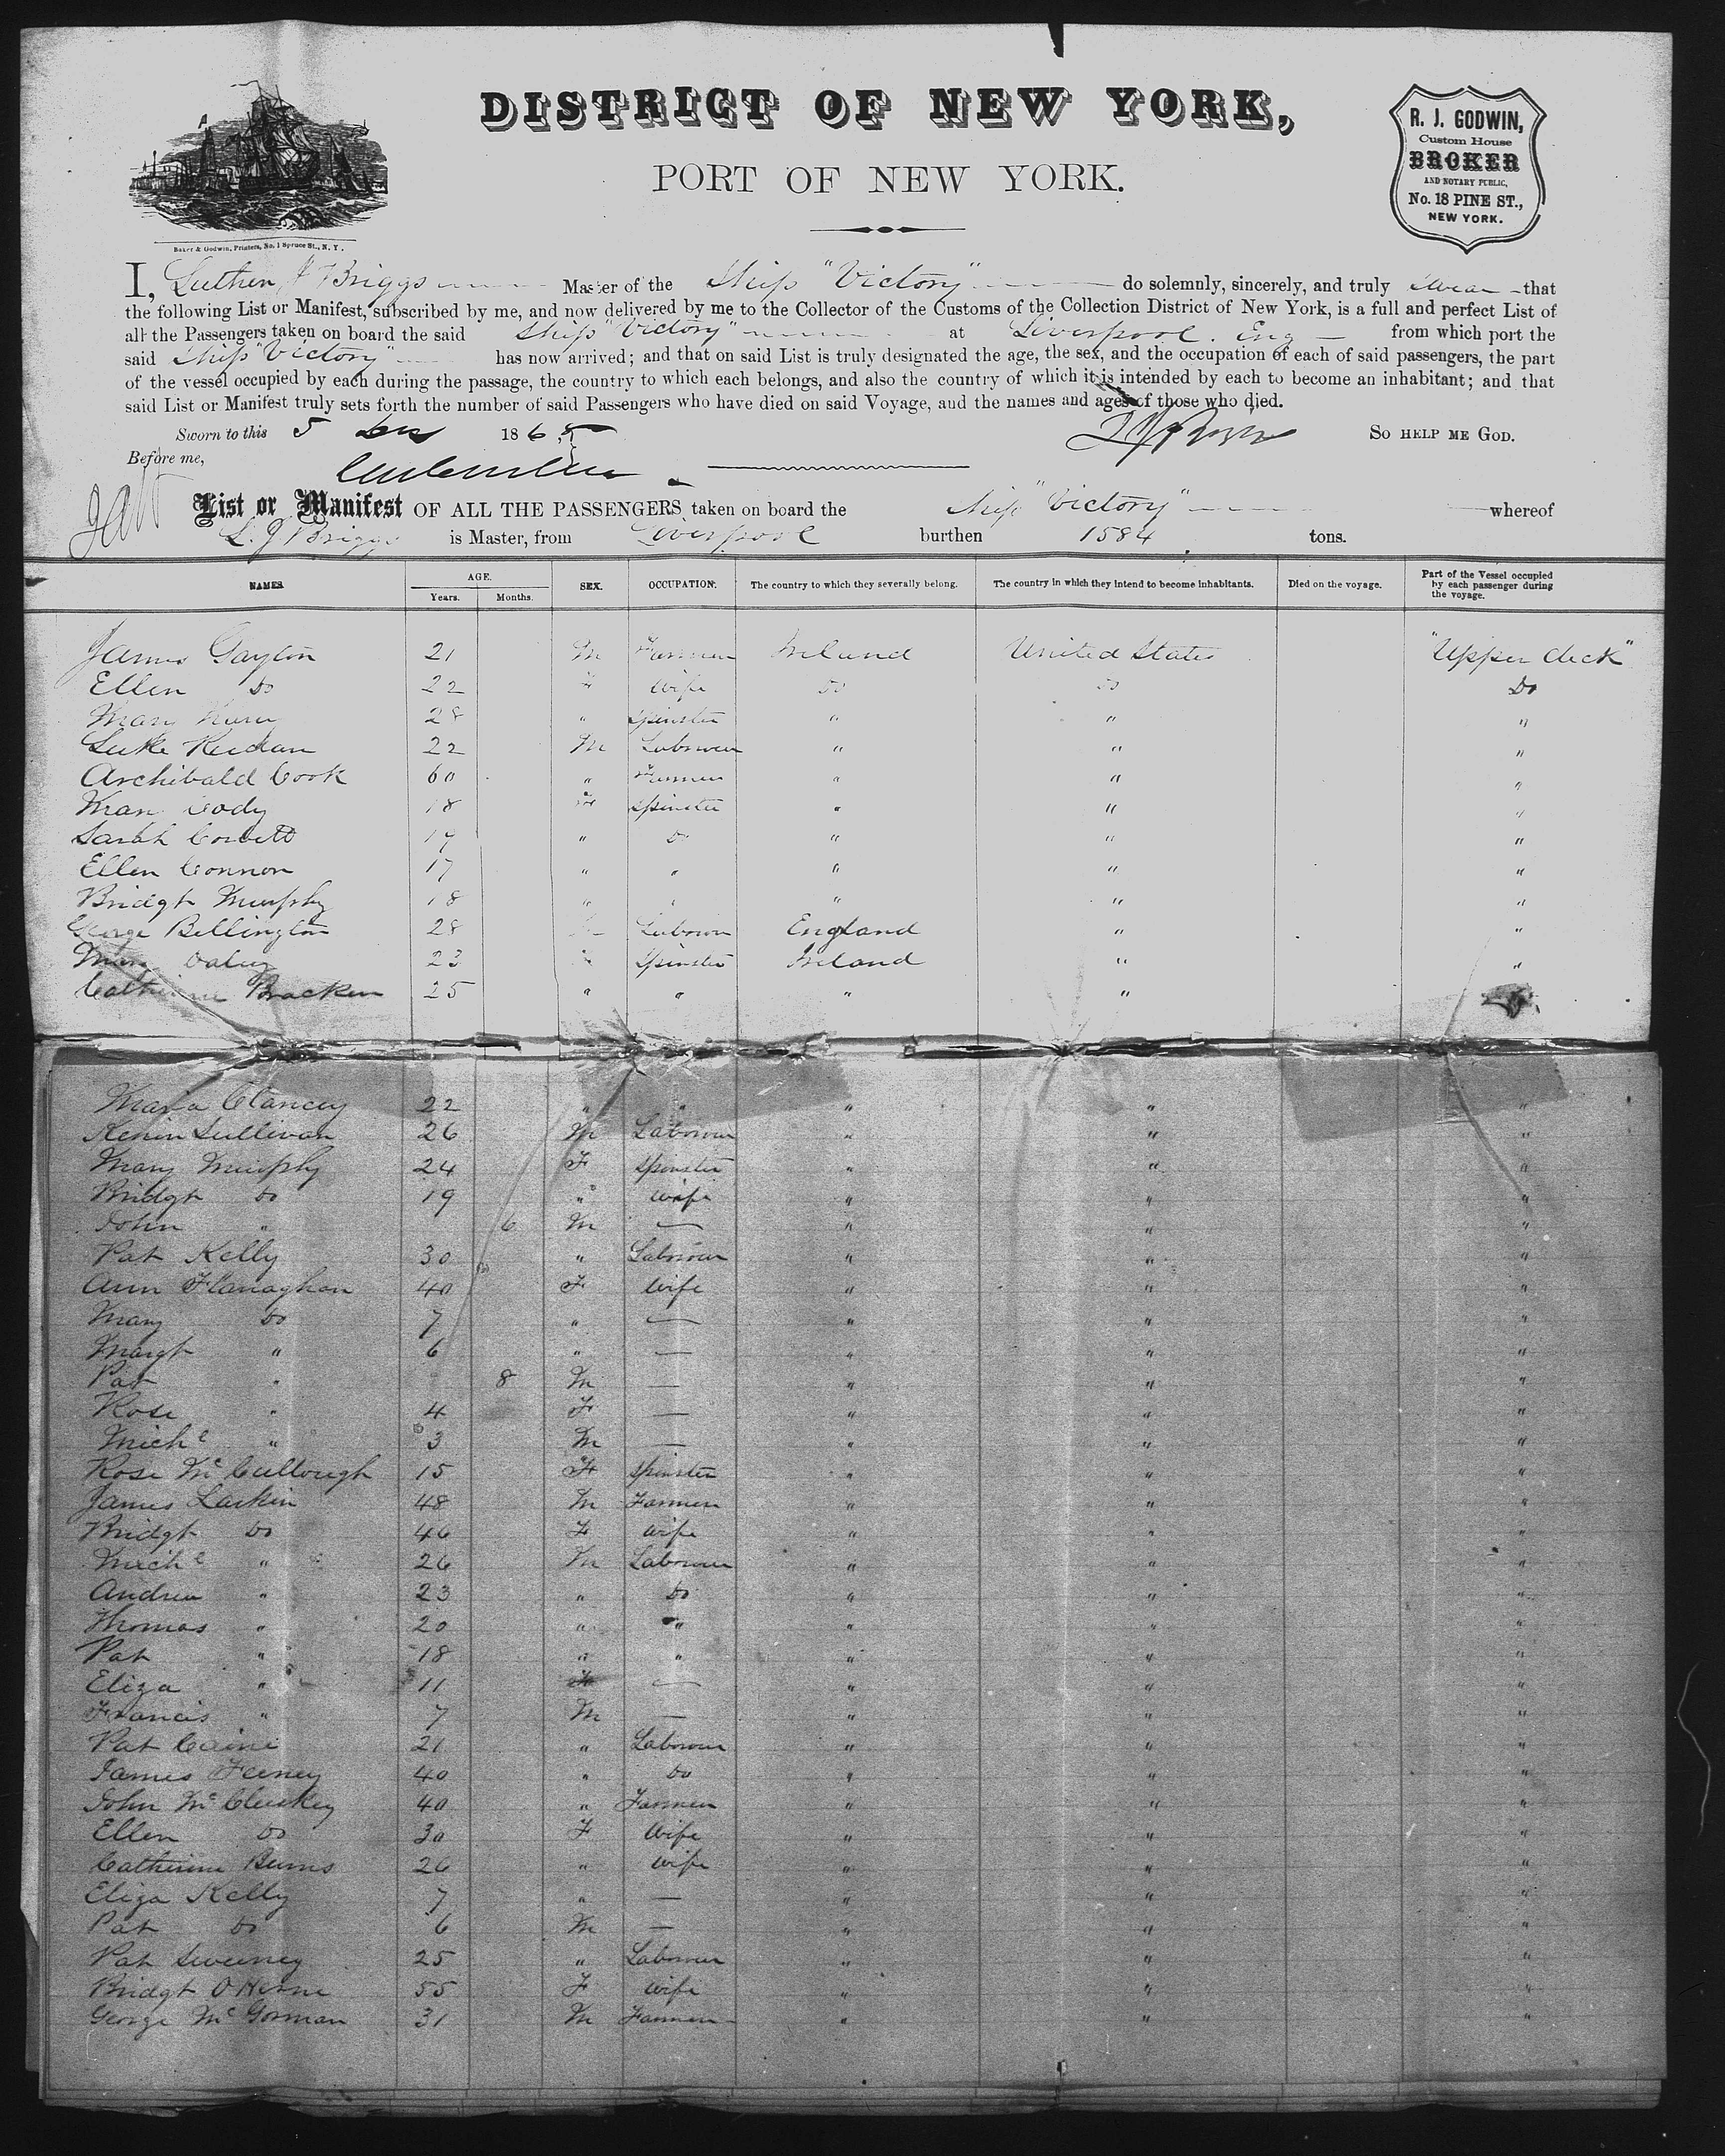 DISTRICT OF NEW YORK,
PORT OF NEW YORK.
Baker & Godwin, Printers, No. 1 Spruce St., N. Y.
R. J. GODWIN,
Custom House
BROKER
AND NOTARY PUBLIC,
No. 18 PINE ST.,
NEW YORK.
I, Luther J Briggs Master of the Ship "Victory" do solemnly, sincerely, and truly swear that
the following List or Manifest, subscribed by me, and now delivered by me to the Collector of the Customs of the Collection District of New York, is a full and perfect List of
all the Passengers taken on board the said Ship "Victory" at Liverpool. Eng from which port the
said Ship "Victory" has now arrived; and that on said List is truly designated the age, the sex, and the occupation of each of said passengers, the part
of the vessel occupied by each during the passage, the country to which each belongs, and also the country of which it is intended by each to become an inhabitant; and that
said List or Manifest truly sets forth the number of said Passengers who have died on said Voyage, and the names and ages of those who died.
Sworn to this 5 1865 SO HELP ME GOD.
Before me,
List or Manifest OF ALL THE PASSENGERS taken on board the Ship "Victory" whereof
L. J Briggs is Master, from Liverpool burthen 1584 tons.
NAMES. AGE. Years. Months. SEX. OCCUPATION. The country to which they severally belong. The country in which they intend to become inhabitants. Died on the voyage. Part of the Vessel occupied by each passenger during the voyage.
James Gayton 21 M Farmer Ireland United States "Upper deck"
Ellen Do 22 F Wife Do Do Do
Mary 28 " Spinster " " "
Luke 22 M Labourer " " "
Archibald Cook 60 " Farmer " " "
Mary Cody 18 F Spinster " " "
Sarah Corbett 19 " Do " " "
Ellen Connor 17 " " " " "
Bridgt Murphy 18 " " " " "
George Bellington 28 Labourer England " "
Mary Daley 23 Spinster Ireland " "
Catherine Bracken 25 " " " "
Maria Clancey 22 " " " " "
Kevin Sullivan 26 M Labourer " " "
Mary Murphy 24 F Spinster " " "
Bridgt Do 19 " Wife " " "
John " 6 M — " " "
Pat Kelly 30 " Labourer " " "
Ann Flanaghan 40 F Wife " " "
Mary Do 7 " — " " "
Margt " 6 " — " " "
Pat " 8 M — " " "
Rose " 4 F — " " "
Michl " 3 M — " " "
Rose McCullough 15 F Spinster " " "
James Larkin 48 M Farmer " " "
Bridgt Do 46 F Wife " " "
Michl " 26 M Labourer " " "
Andrew " 23 " Do " " "
Thomas " 20 " " " " "
Pat " 18 " " " " "
Eliza " 11 F — " " "
Francis " 7 M — " " "
Pat Caine 21 " Labourer " " "
James Feeney 40 " Do " " "
John McCluskey 40 " Farmer " " "
Ellen Do 30 F Wife " " "
Catherine Burns 26 " Wife " " "
Eliza Kelly 7 " — " " "
Pat Do 6 M — " " "
Pat Sweeney 25 " Labourer " " "
Bridgt O'Herne 55 F Wife " " "
George McGorman 31 M Farmer " " "